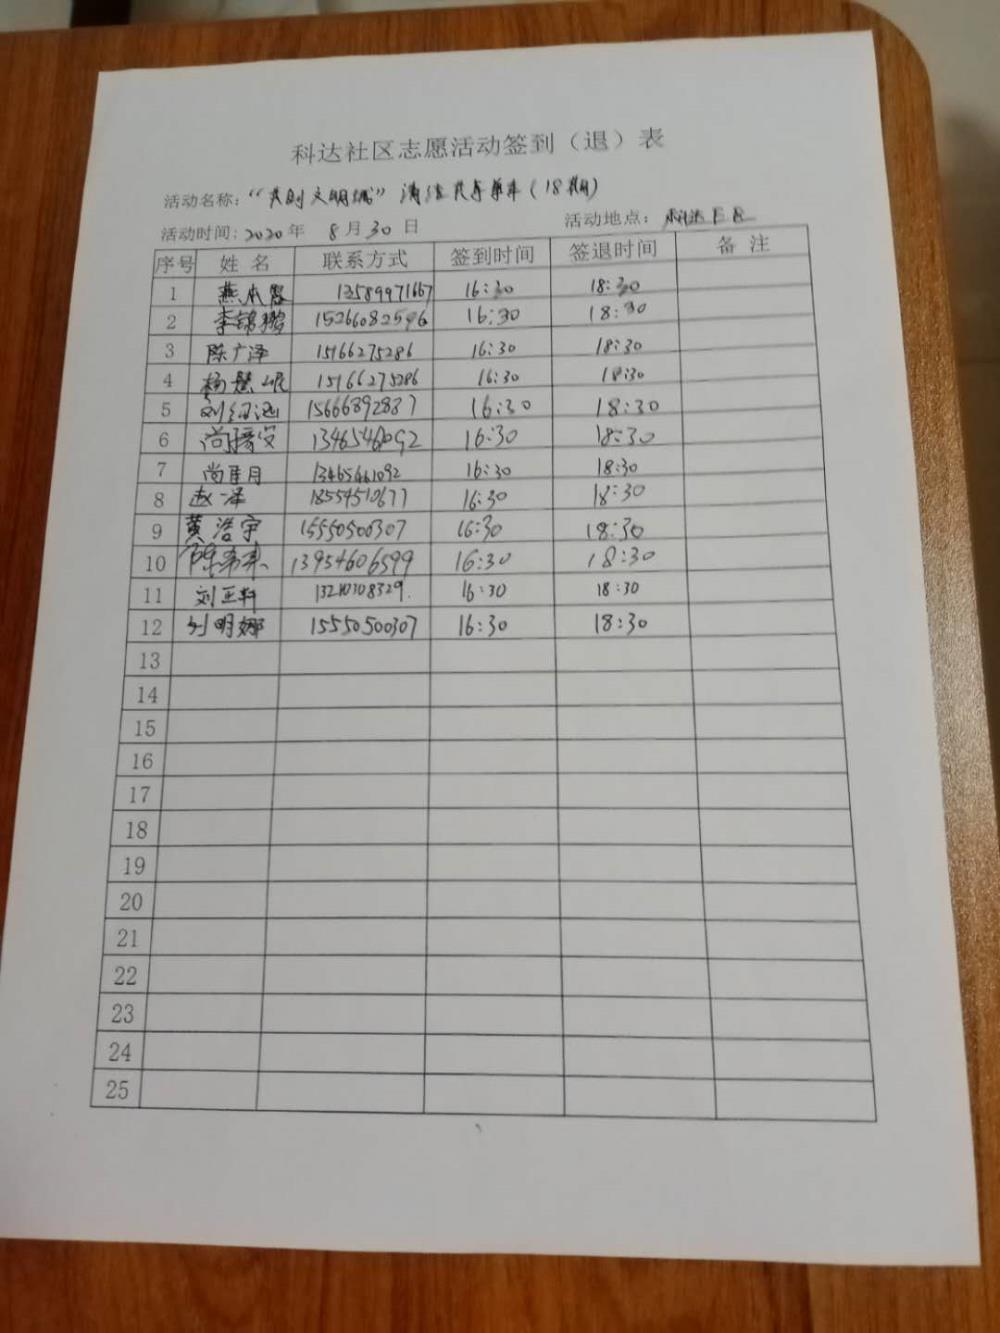 科达社区志愿活动签到（退）表
活动名称：“共创文明城” 清洁共享单车（18期）
活动时间：2020年 8月30日 活动地点：科达社区
序号 姓名 联系方式 签到时间 签退时间 备注
1 燕本 13589971667 16:30 18:30
2 李锦鹏 15266082596 16:30 18:30
3 陈广泽 15166275286 16:30 18:30
4 杨慧 15166275286 16:30 18:30
5 刘 15666892837 16:30 18:30
6 尚 16:30 18:30
7 尚佳月 13465461092 16:30 18:30
8 赵一泽 18554510677 16:30 18:30
9 黄浩宇 15550500307 16:30 18:30
10 陈 13954606599 16:30 18:30
11 刘正轩 13210308329. 16:30 18:30
12 刘明娜 15550500307 16:30 18:30
13
14
15
16
17
18
19
20
21
22
23
24
25